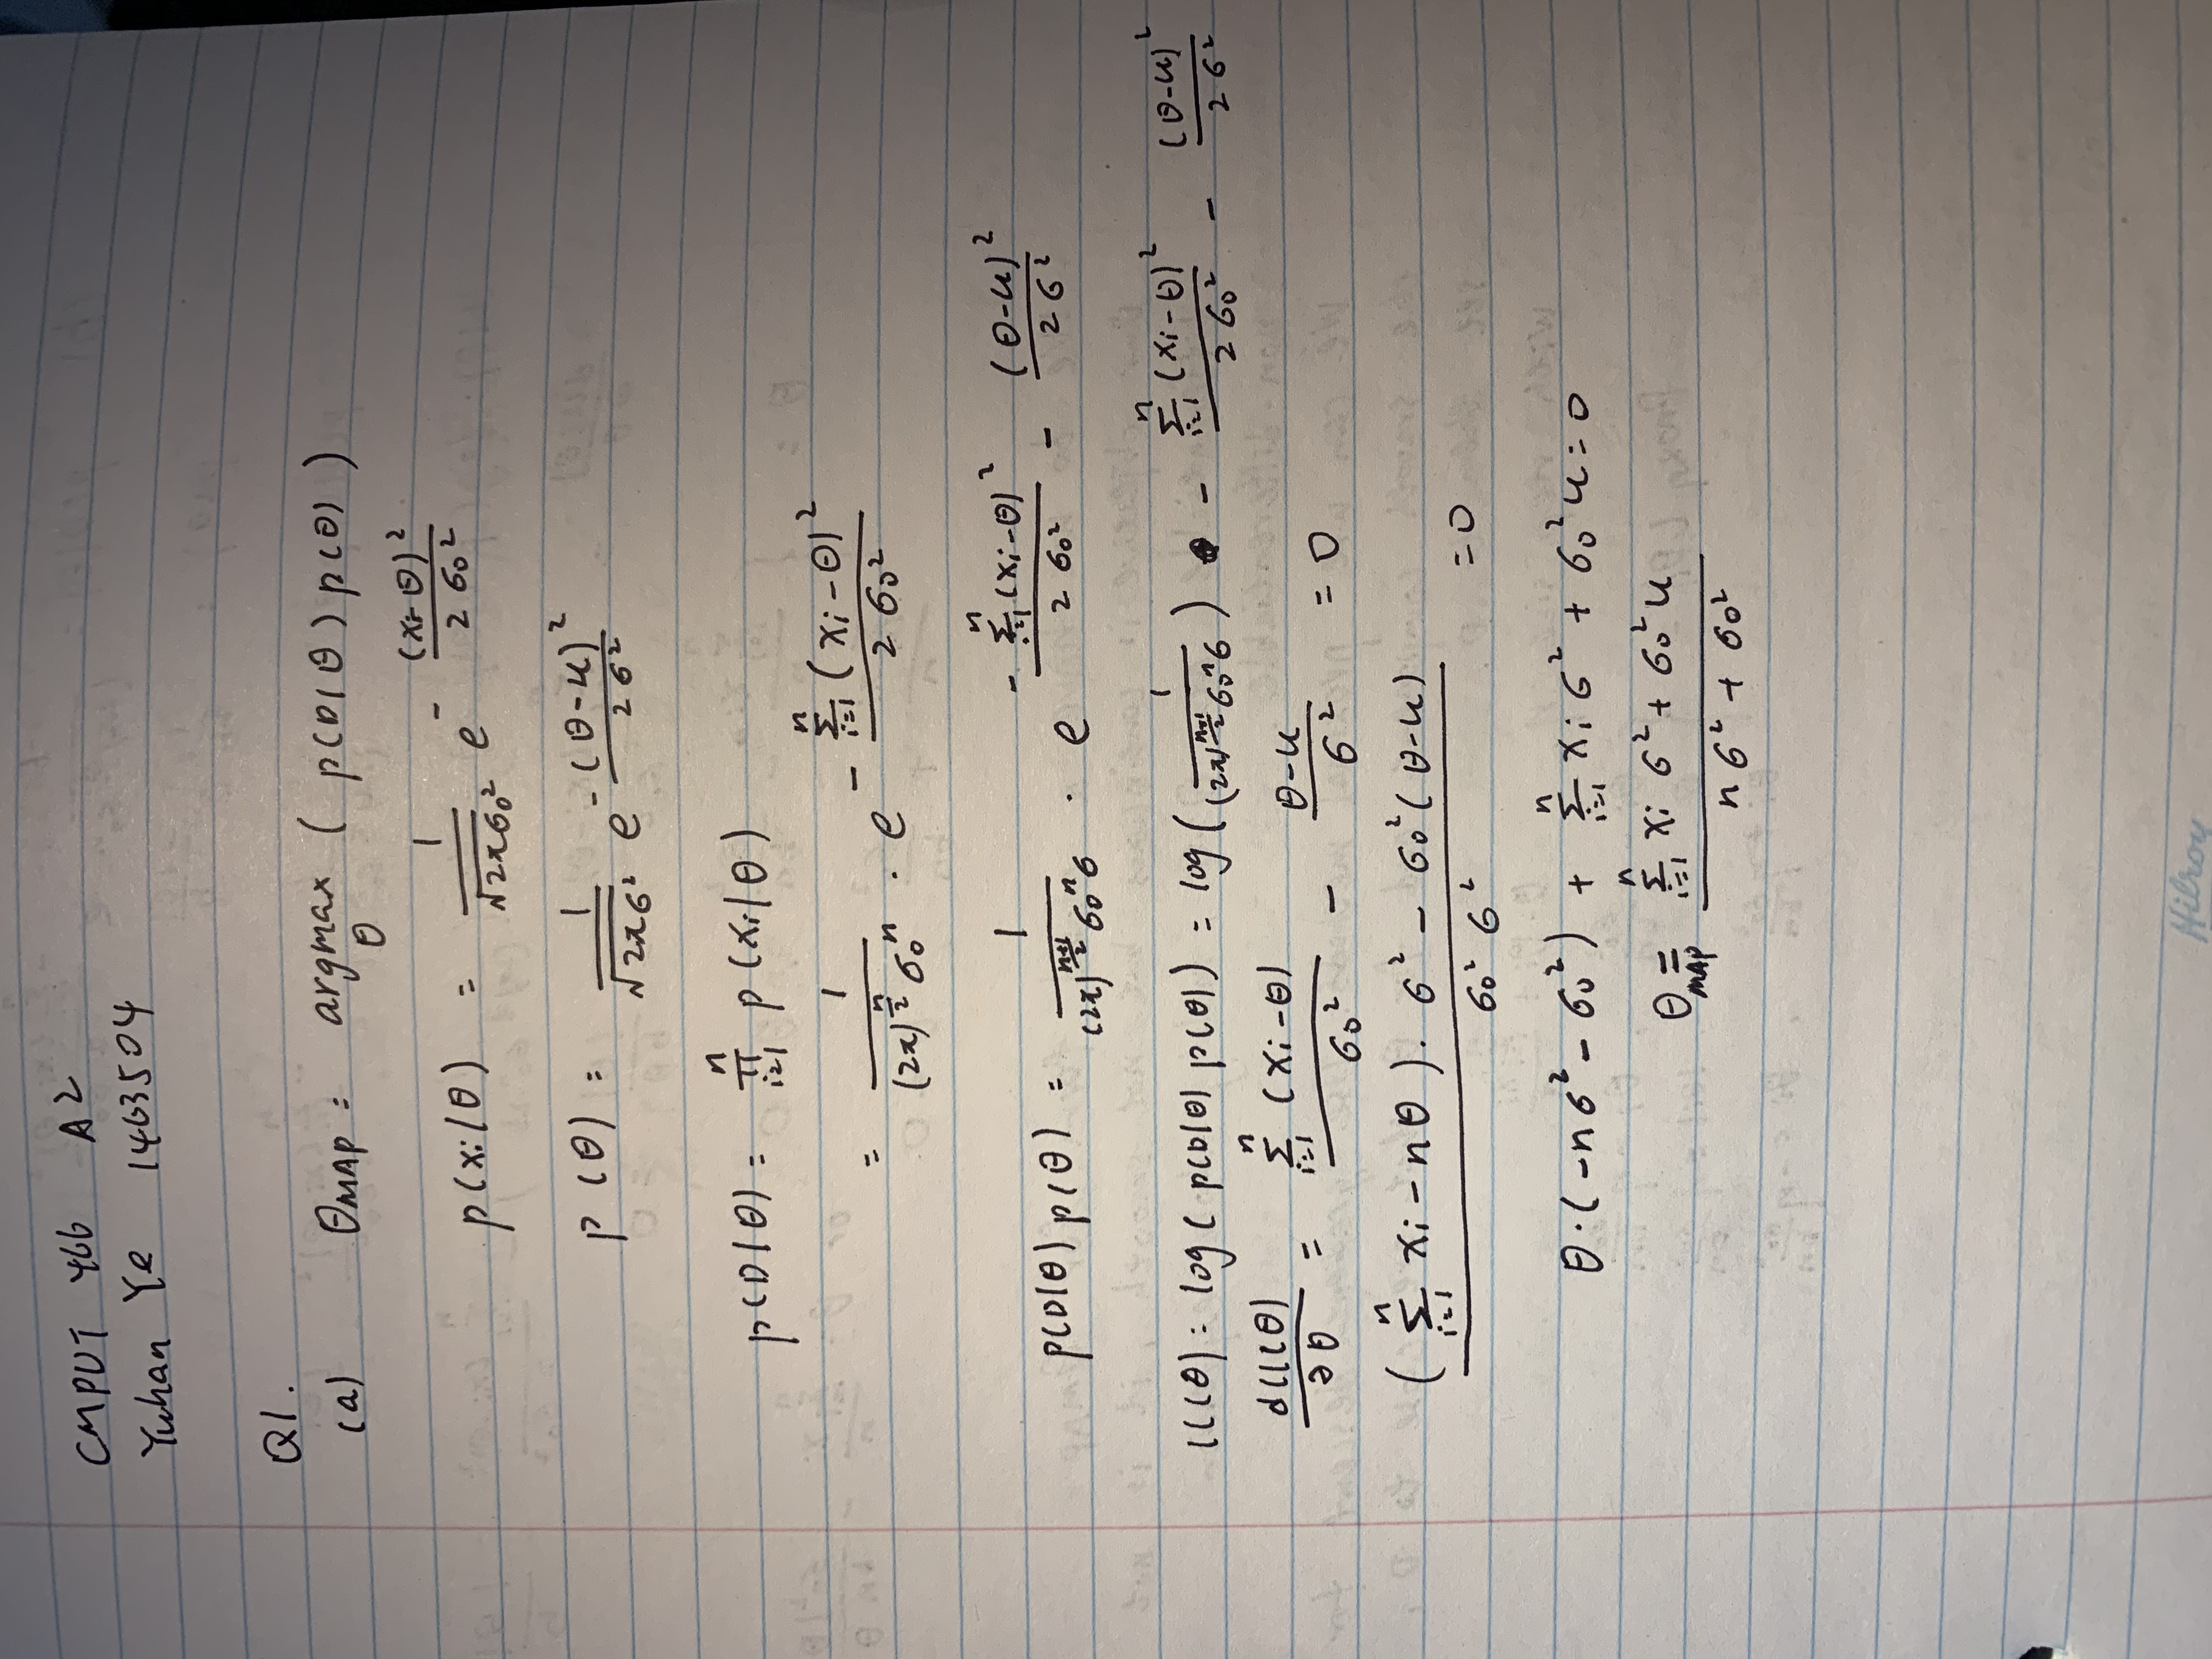 CMPUT 466 A2
Yuhan Ye 1463504
Q1.
(a) θMAP = argmax_θ ( p(D|θ) p(θ) )
p(xi|θ) = 1/√(2πσ₀²) e^(-(xi-θ)²/(2σ₀²))
p(θ) = 1/√(2πσ²) e^(-(θ-u)²/(2σ²))
p(D|θ) = ∏_{i=1}^{n} p(xi|θ)
= 1/((2π)^(n/2) σ₀ⁿ) · e^(-∑_{i=1}^{n}(xi-θ)²/(2σ₀²))
p(D|θ) p(θ) = 1/((2π)^((n+1)/2) σ₀ⁿσ) · e^(-∑_{i=1}^{n}(xi-θ)²/(2σ₀²) - (θ-u)²/(2σ²))
ll(θ) = log( p(D|θ) p(θ) ) = log( 1/((2π)^((n+1)/2) σ₀ⁿσ) ) - ∑_{i=1}^{n}(xi-θ)²/(2σ₀²) - (θ-u)²/(2σ²)
dll(θ)/∂θ = ∑_{i=1}^{n}(xi-θ)/σ₀² - (θ-u)/σ² = 0
((∑_{i=1}^{n} xi - nθ) · σ² - σ₀²(θ-u))/(σ₀²σ²) = 0
θ·(-nσ² - σ₀²) + ∑_{i=1}^{n} xi σ² + σ₀²u = 0
θMAP = (∑_{i=1}^{n} xi σ² + σ₀²u)/(nσ² + σ₀²)
Hilroy